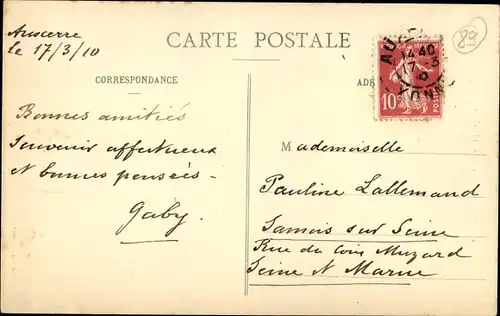 Auxerre
le 17/3/10
CARTE POSTALE
89
CORRESPONDANCE
ADR
10c
POSTES
AUXE
14 40
17 - 3
10
YONNE
Bonnes amitiés
Souvenir affectueux
et bonnes pensées -
Gaby.
Mademoiselle
Pauline Lallemand
Samois sur Seine
Rue du Coin Muzard
Seine et Marne